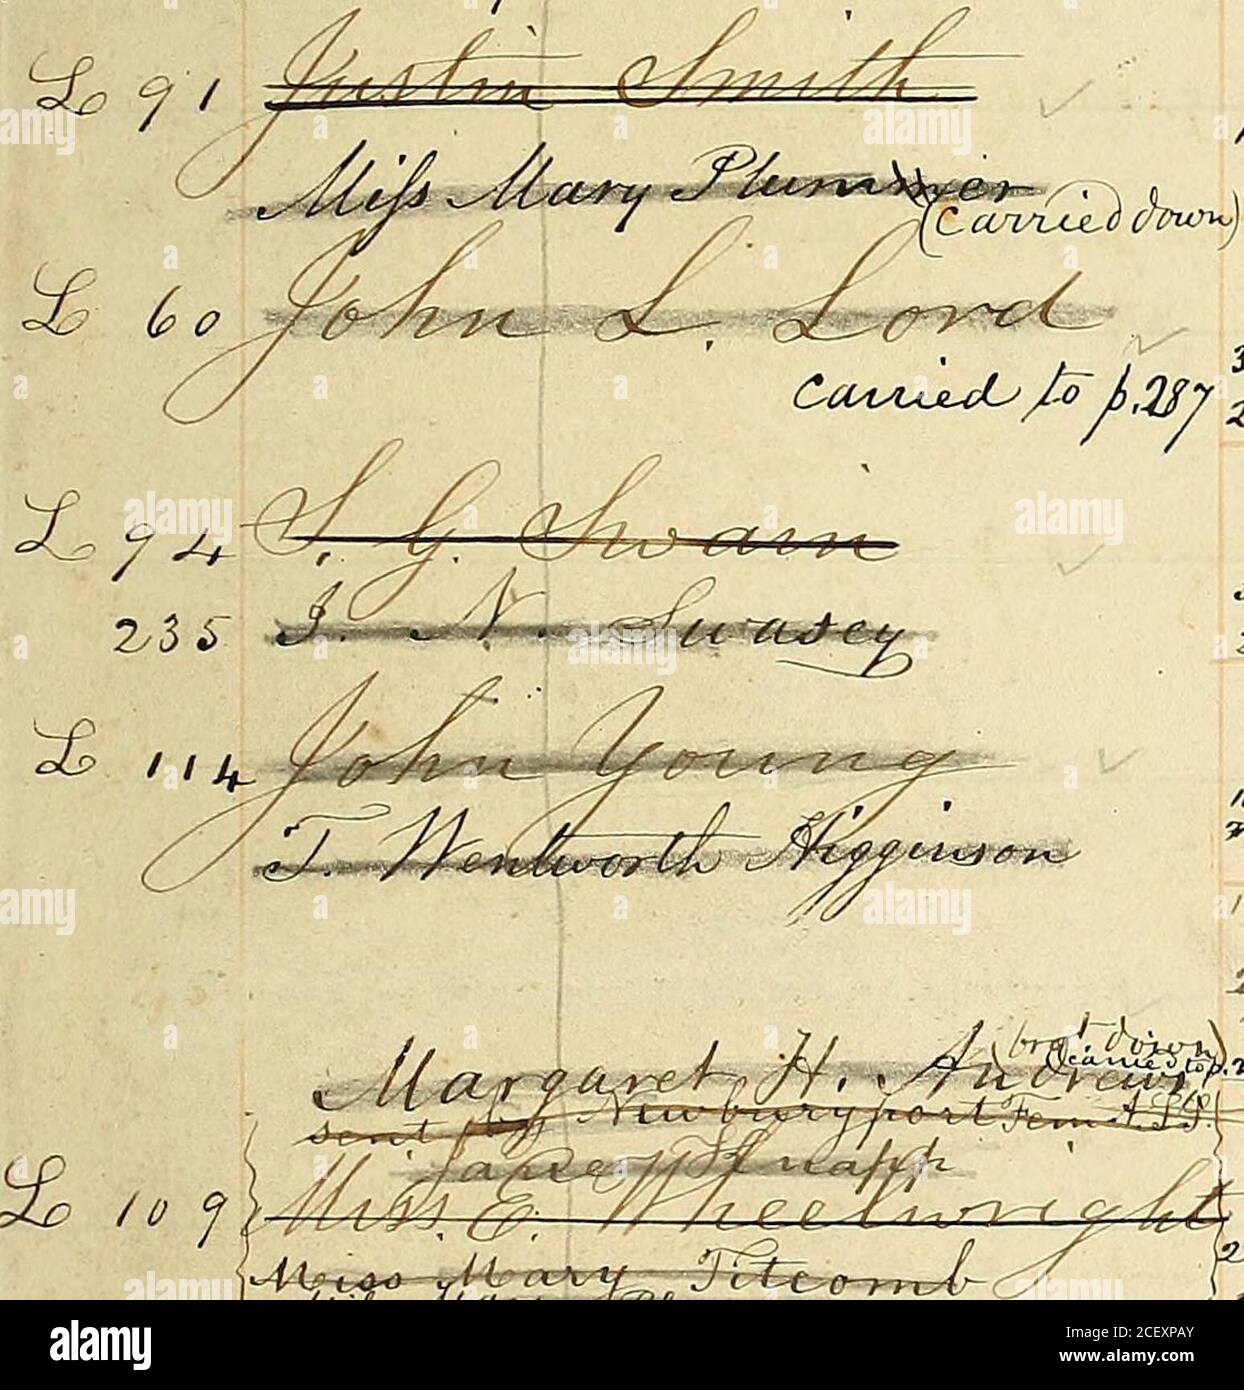 L 91 Justin Smith
Miss Mary Plummer
(carried down)
L 60 John L. Lord
carried to p. 287
L 94 S. G. Swain
235 J. N. Swasey
L 114 John Young
T. Wentworth Higginson
(bro't down)
(carried to p. 2
Margaret H. Andrews
sent by Newburyport Fem A.S.S.
Jane Knapp
L 109 Miss. E. Wheelwright
Miss Mary Titcomb
alamy
Image ID: 2CEXPAY
www.alamy.com